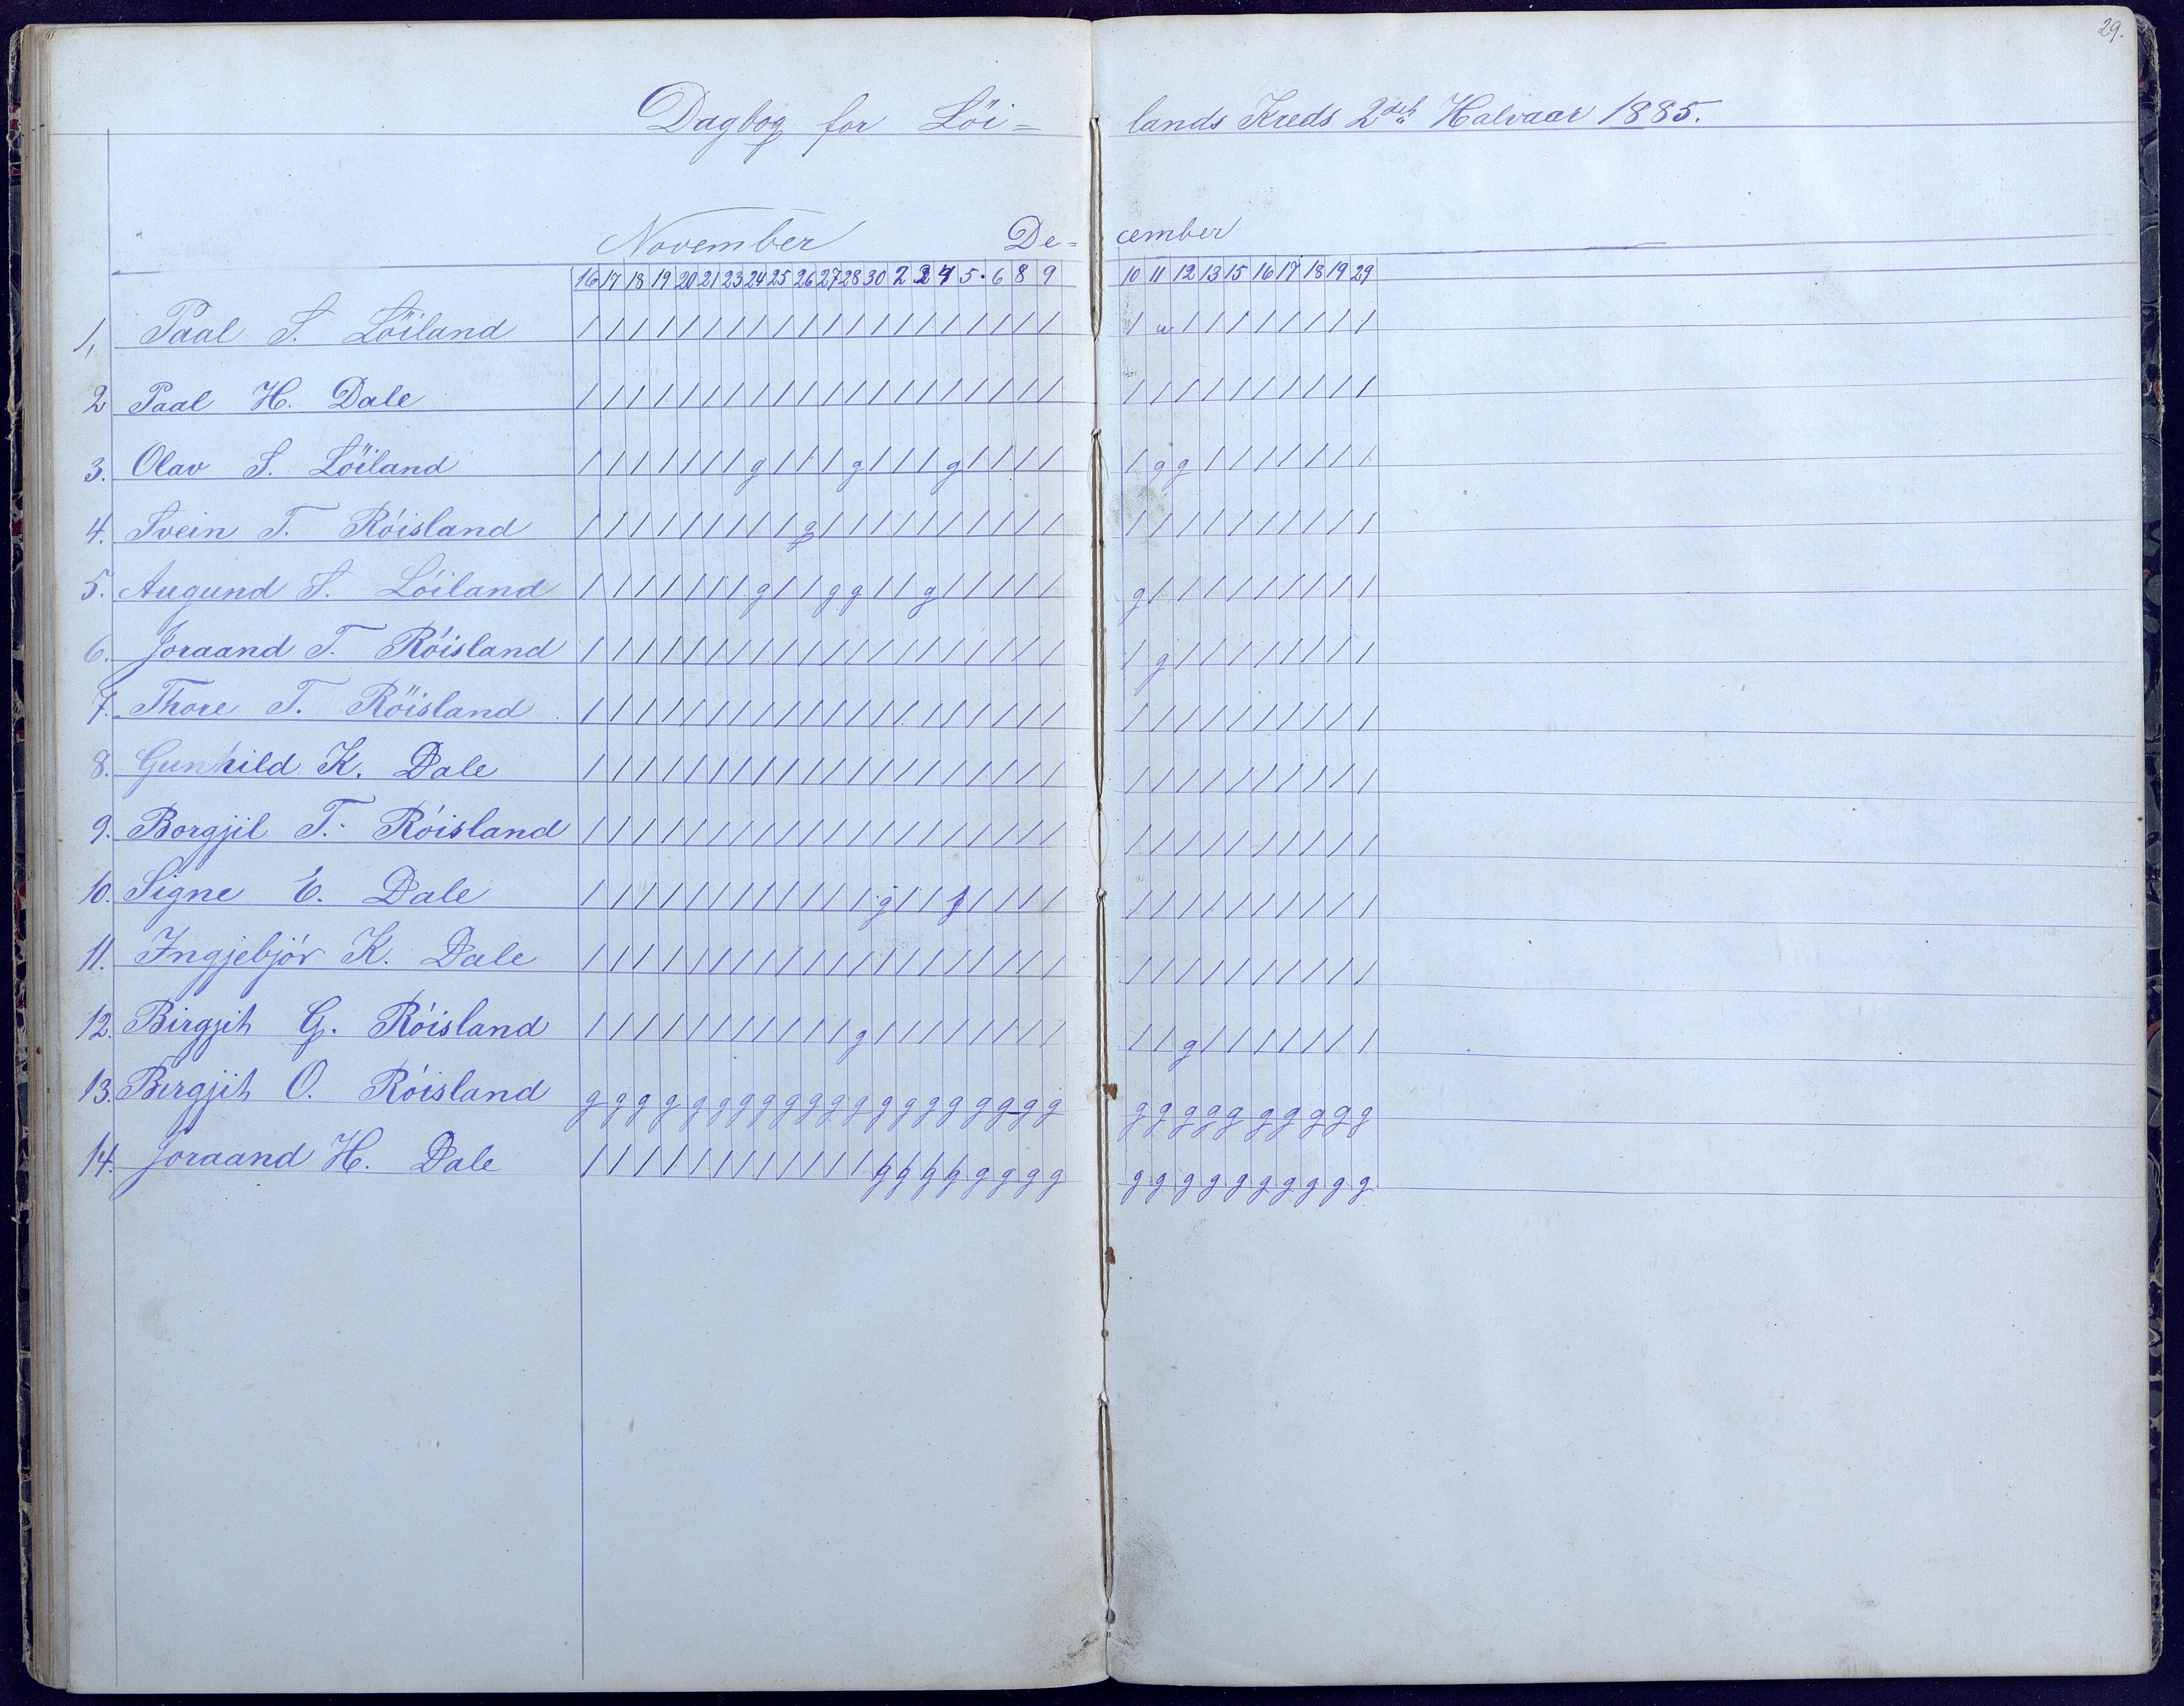 29.
Dagbog for Löi= lands Kreds 2det Halvaar 1885.
November De= cember
16 17 18 19 20 21 23 24 25 26 27 28 30 2 3 4 5. 6 8 9 10 11 12 13 15 16 17 18 19 29
1, Paal S. Löiland / / / / / / / / / / / / / / / / / / / / / w / / / / / / / /
2 Paal H. Dale / / / / / / / / / / / / / / / / / / / / / / / / / / / / / /
3. Olav S. Löiland / / / / / / / g / / / g / / / g / / / / / g g / / / / / / /
4. Svein T. Röisland / / / / / / / / / g / / / / / / / / / / / / / / / / / / / /
5. Augund S. Löiland / / / / / / / g / / g g / / g / / / / / g / / / / / / / / /
6. Joraand T. Röisland / / / / / / / / / / / / / / / / / / / / / g / / / / / / / /
7. Thore T. Röisland / / / / / / / / / / / / / / / / / / / / / / / / / / / / / /
8. Gunhild K. Dale / / / / / / / / / / / / / / / / / / / / / / / / / / / / / /
9. Borgjil T. Röisland / / / / / / / / / / / / / / / / / / / / / / / / / / / / / /
10. Signe E. Dale / / / / / / / / / / / / g / / / / / / / / / / / / / / / / /
11. Ingjebjör K. Dale / / / / / / / / / / / / / / / / / / / / / / / / / / / / / /
12. Birgjit G. Röisland / / / / / / / / / / / g / / / / / / / / / / g / / / / / / /
13. Birgjit O. Röisland g g g g g g g g g g g g g g g g g g g g g g g g g g g g g g
14. Joraand H. Dale / / / / / / / / / / / / g g g g g g g g g g g g g g g g g g